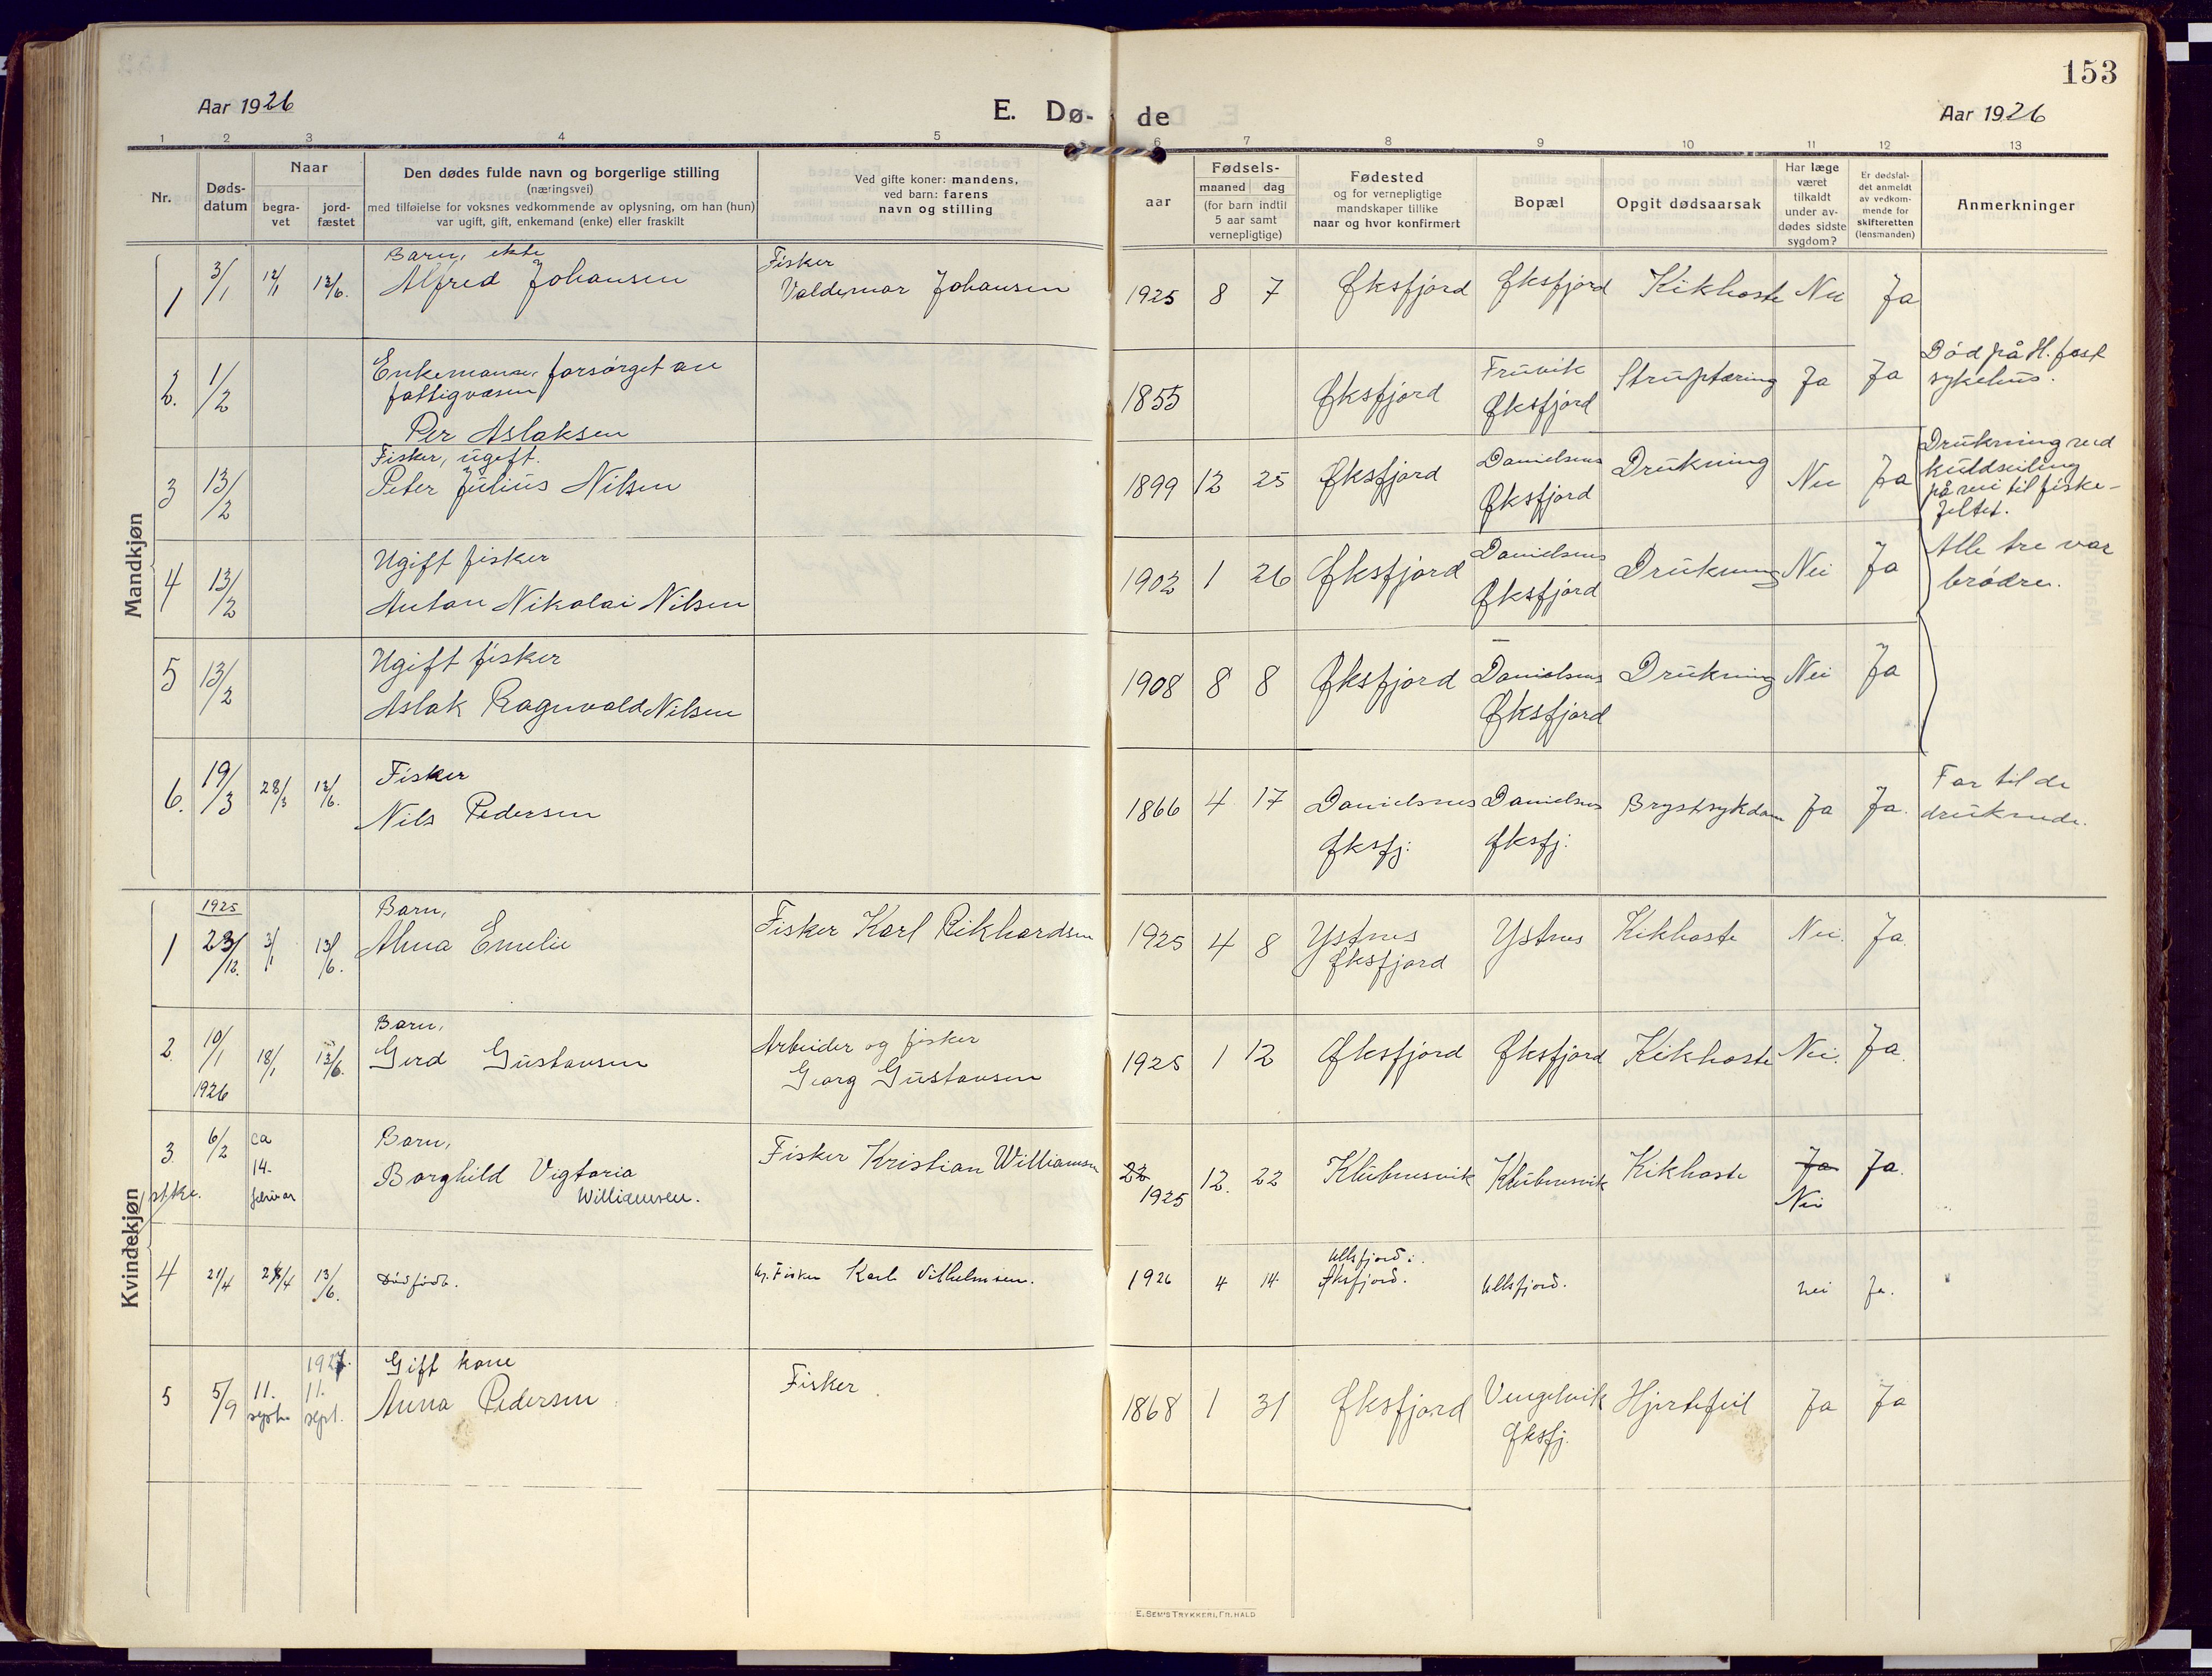 153
Aar 1926
E. Dø- de
Aar 1926
1 2 3 4 5 6 7 8 9 10 11 12 13
Nr.
Døds-
datum
Naar
begra-
vet
jord-
fæstet
Den dødes fulde navn og borgerlige stilling
(næringsvei)
med tilføielse for voksnes vedkommende av oplysning, om han (hun)
var ugift, gift, enkemand (enke) eller fraskilt
Ved gifte koner: mandens,
ved barn: farens
navn og stilling
Fødsels-
aar
maaned dag
(for barn indtil
5 aar samt
vernepligtige)
Fødested
og for vernepligtige
mandskaper tillike
naar og hvor konfirmert
Bopæl
Opgit dødsaarsak
Har læge
været
tilkaldt
under av-
dødes sidste
sygdom?
Er dødsfal-
det anmeldt
av vedkom-
mende for
skifteretten
(lensmanden)
Anmerkninger
Mandkjøn
Barn, ekte
1 3/1 12/1 13/6. Alfred Johansen
Fisker
Valdemar Johansen
1925 8 7 Øksfjord Øksfjord Kikhoste Nei Ja
2. 1/2
Enkemann, forsørget av
fattigvæsen
Per Aslaksen
1855 Øksfjord
Fruvik
Øksfjord
Struptæring Ja Ja
Død på H.fest
sykehus.
3 13/2
Fisker, ugift.
Peter Julius Nilsen
1899 12 25 Øksfjord
Danielsnes
Øksfjord
Drukning Nei Ja
Drukning ved
kuldseiling
på vei til fiske-
feltet.
4 13/2
Ugift fisker
Anton Nikolai Nilsen
1902 1 26 Øksfjord
Danielsnes
Øksfjord
Drukning Nei Ja
Alle tre var
brødre.
5 13/2
Ugift fisker
Aslak Ragnvald Nilsen
1908 8 8 Øksfjord
Danielsnes
Øksfjord
Drukning Nei Ja
6. 19/3 28/3 13/6.
Fisker
Nils Pedersen
1866 4 17
Danielsnes
Øksfj:
Danielsnes
Øksfj:
Brystsykdom Ja Ja.
Far til de
druknede.
Kvindekjøn
1925
1 23/12. 3/1 13/6.
Barn,
Alma Emelie
Fisker Karl Rikhardsen
1925 4 8
Ystnes
Øksfjord
Ystnes Kikhoste Nei. Ja.
2. 10/1
1926
18/1 13/6.
Barn,
Gerd Gustavsen
Arbeider og fisker
Georg Gustavsen
1925 1 12 Øksfjord Øksfjord Kikhoste Nei. Ja.
3. 6/2
ca
14.
februar
Barn,
Borghild Vigtoria
Williamsen.
Fisker Kristian Williamsen
22
1925 12. 22 Klubnesvik Klubnesvik Kikhoste
Ja
Nei
Ja.
4 21/4 28/4 13/6.
Dødfødt.
Ug. Fisker Karl Vilhelmsen.
1926 4 14.
Ullsfjord i
Øksfjord.
Ullsfjord.
nei Ja.
5 5/9
11.
septr.
1927.
11.
sept.
Gift kone
Anna Pedersen
Fisker.
1868 1 31 Øksfjord
Vengelvik
Øksfj.
Hjertefeil Ja Ja
E. SEM'S TRYKKERI, FR.HALD